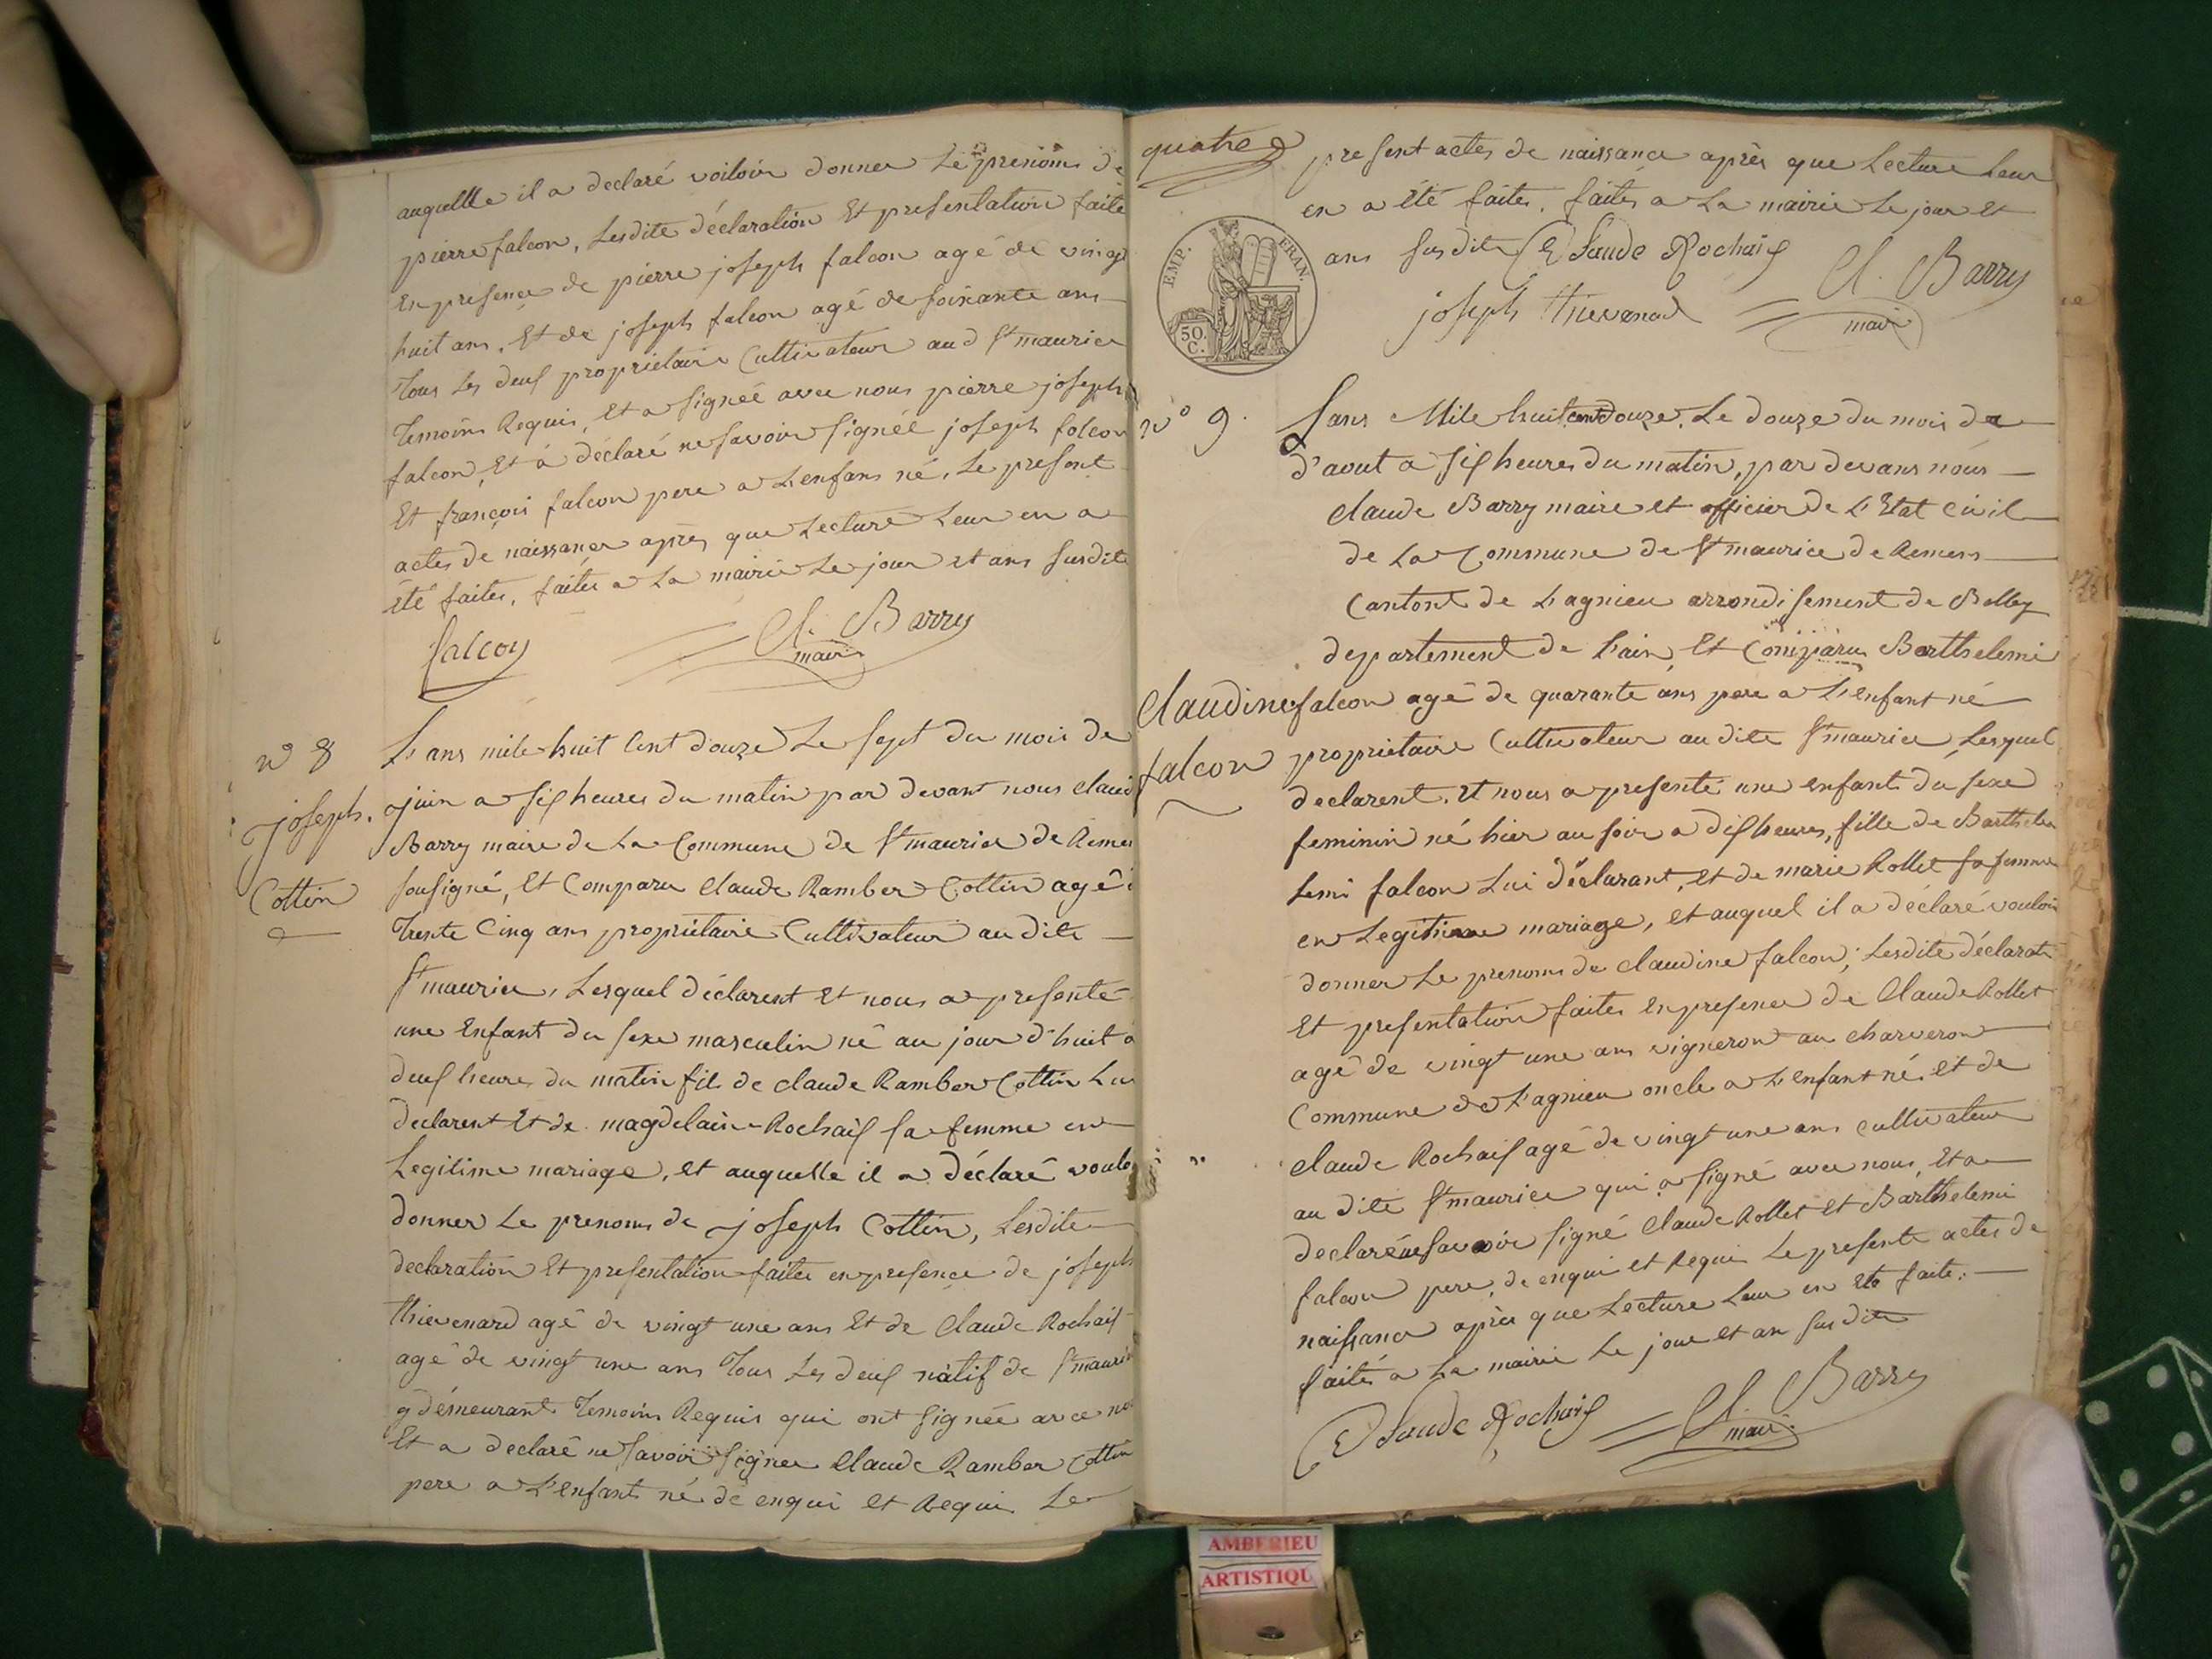 auquelle il a declaré voiloir donner le prenoms de
pierre falcon, lesdite déclaration et presentation faite
en presence de pierre joseph falcon agé de vingt
huit ans, et de joseph falcon agé de soixante ans
tous les deux proprietaire Cultivateur aud St maurice
temoins Requis, et a signéé avec nous pierre joseph
falcon, et a déclaré ne savoir signéé joseph falcon
et françois falcon pere a l'enfans né, le present
actes de naissance après que lecture leur en a
été faites, faites a la mairie le jour et ans susdite
falcon
Cl. Barry
maire
n° 8
joseph.
Cottin
L'ans mile huit Cent douze le sept du mois de
juin a six heures du matin par devant nous claud
Barry maire de la Commune de St maurice de Reme
sousigné, et Comparu Claude Ramber Cottin agé
trente Cinq ans propriétaire Cultivateur audite
St maurice, lesquel déclarent et nous a presenté
une Enfant du sexe masculin né au jour d'huit a
deux heures du matin fils de claude Ramber Cottin lui
declarent et de magdelaine Rochaix sa femme en
Legitime mariage, et auquelle il a déclaré voulo
donner le prenoms de joseph Cottin, lesdite
declaration et presentation faites en presence de joseph
thievenard agé de vingt une ans et de Claude Rochaix
agé de vingt une ans tous les deux natif de St mauri
y démeurant temoins Requis qui ont signée avec no
et a declaré ne savoir signer Claude Ramber Cottin
pere a l'enfant né de enqui et Requi le
quatre
present actes de naissance après que lecture leur
en a été faites, faites a la mairie le jour et
ans susdite Claude Rochaix
Cl. Barry
joseph thievenard
maire
EMP. FRAN.
50.
C.
n° 9.
Lans Mile huit cent douze, le douze du mois de
d'aout a six heures du matin, par devans nous
Claude Barry maire et officier de l'Etat Civil
de la Commune de St maurice de Remens
Canton de Lagnieu arrondisement de Belley
departement de Lain, et Comparu Barthelemi
Claudine
falcon
falcon agé de quarante ans pere a l'enfant né
propriétaire Cultivateur audite St maurice lesquel
declarent, et nous a presenté une enfant du sexe
feminin né hier au soir a dix heures, fille de Barthele
lemi falcon lui déclarant, et de marie Rollet sa femme
en Legitime mariage, et auquel il a déclaré vouloir
donner le prenoms de Claudine falcon, lesdite déclarati
et presentation faites en presence de Claude Rollet
agé de vingt une ans vigneron au charveron
Commune de Lagnieu oncle a l'enfant né et de
Claude Rochaix agé de vingt une ans cultivateur
au dite St maurice qui a signé avec nous, et a
declaré ne savoir signé Claude Rollet et Barthelemi
falcon pere, de enqui et Requi le presente actes de
naissance après que lecture leur en été faite.
faites a la mairie le jour et an susdite
Claude Rochaix
Cl. Barry
maire
AMBERIEU
ARTISTIQU